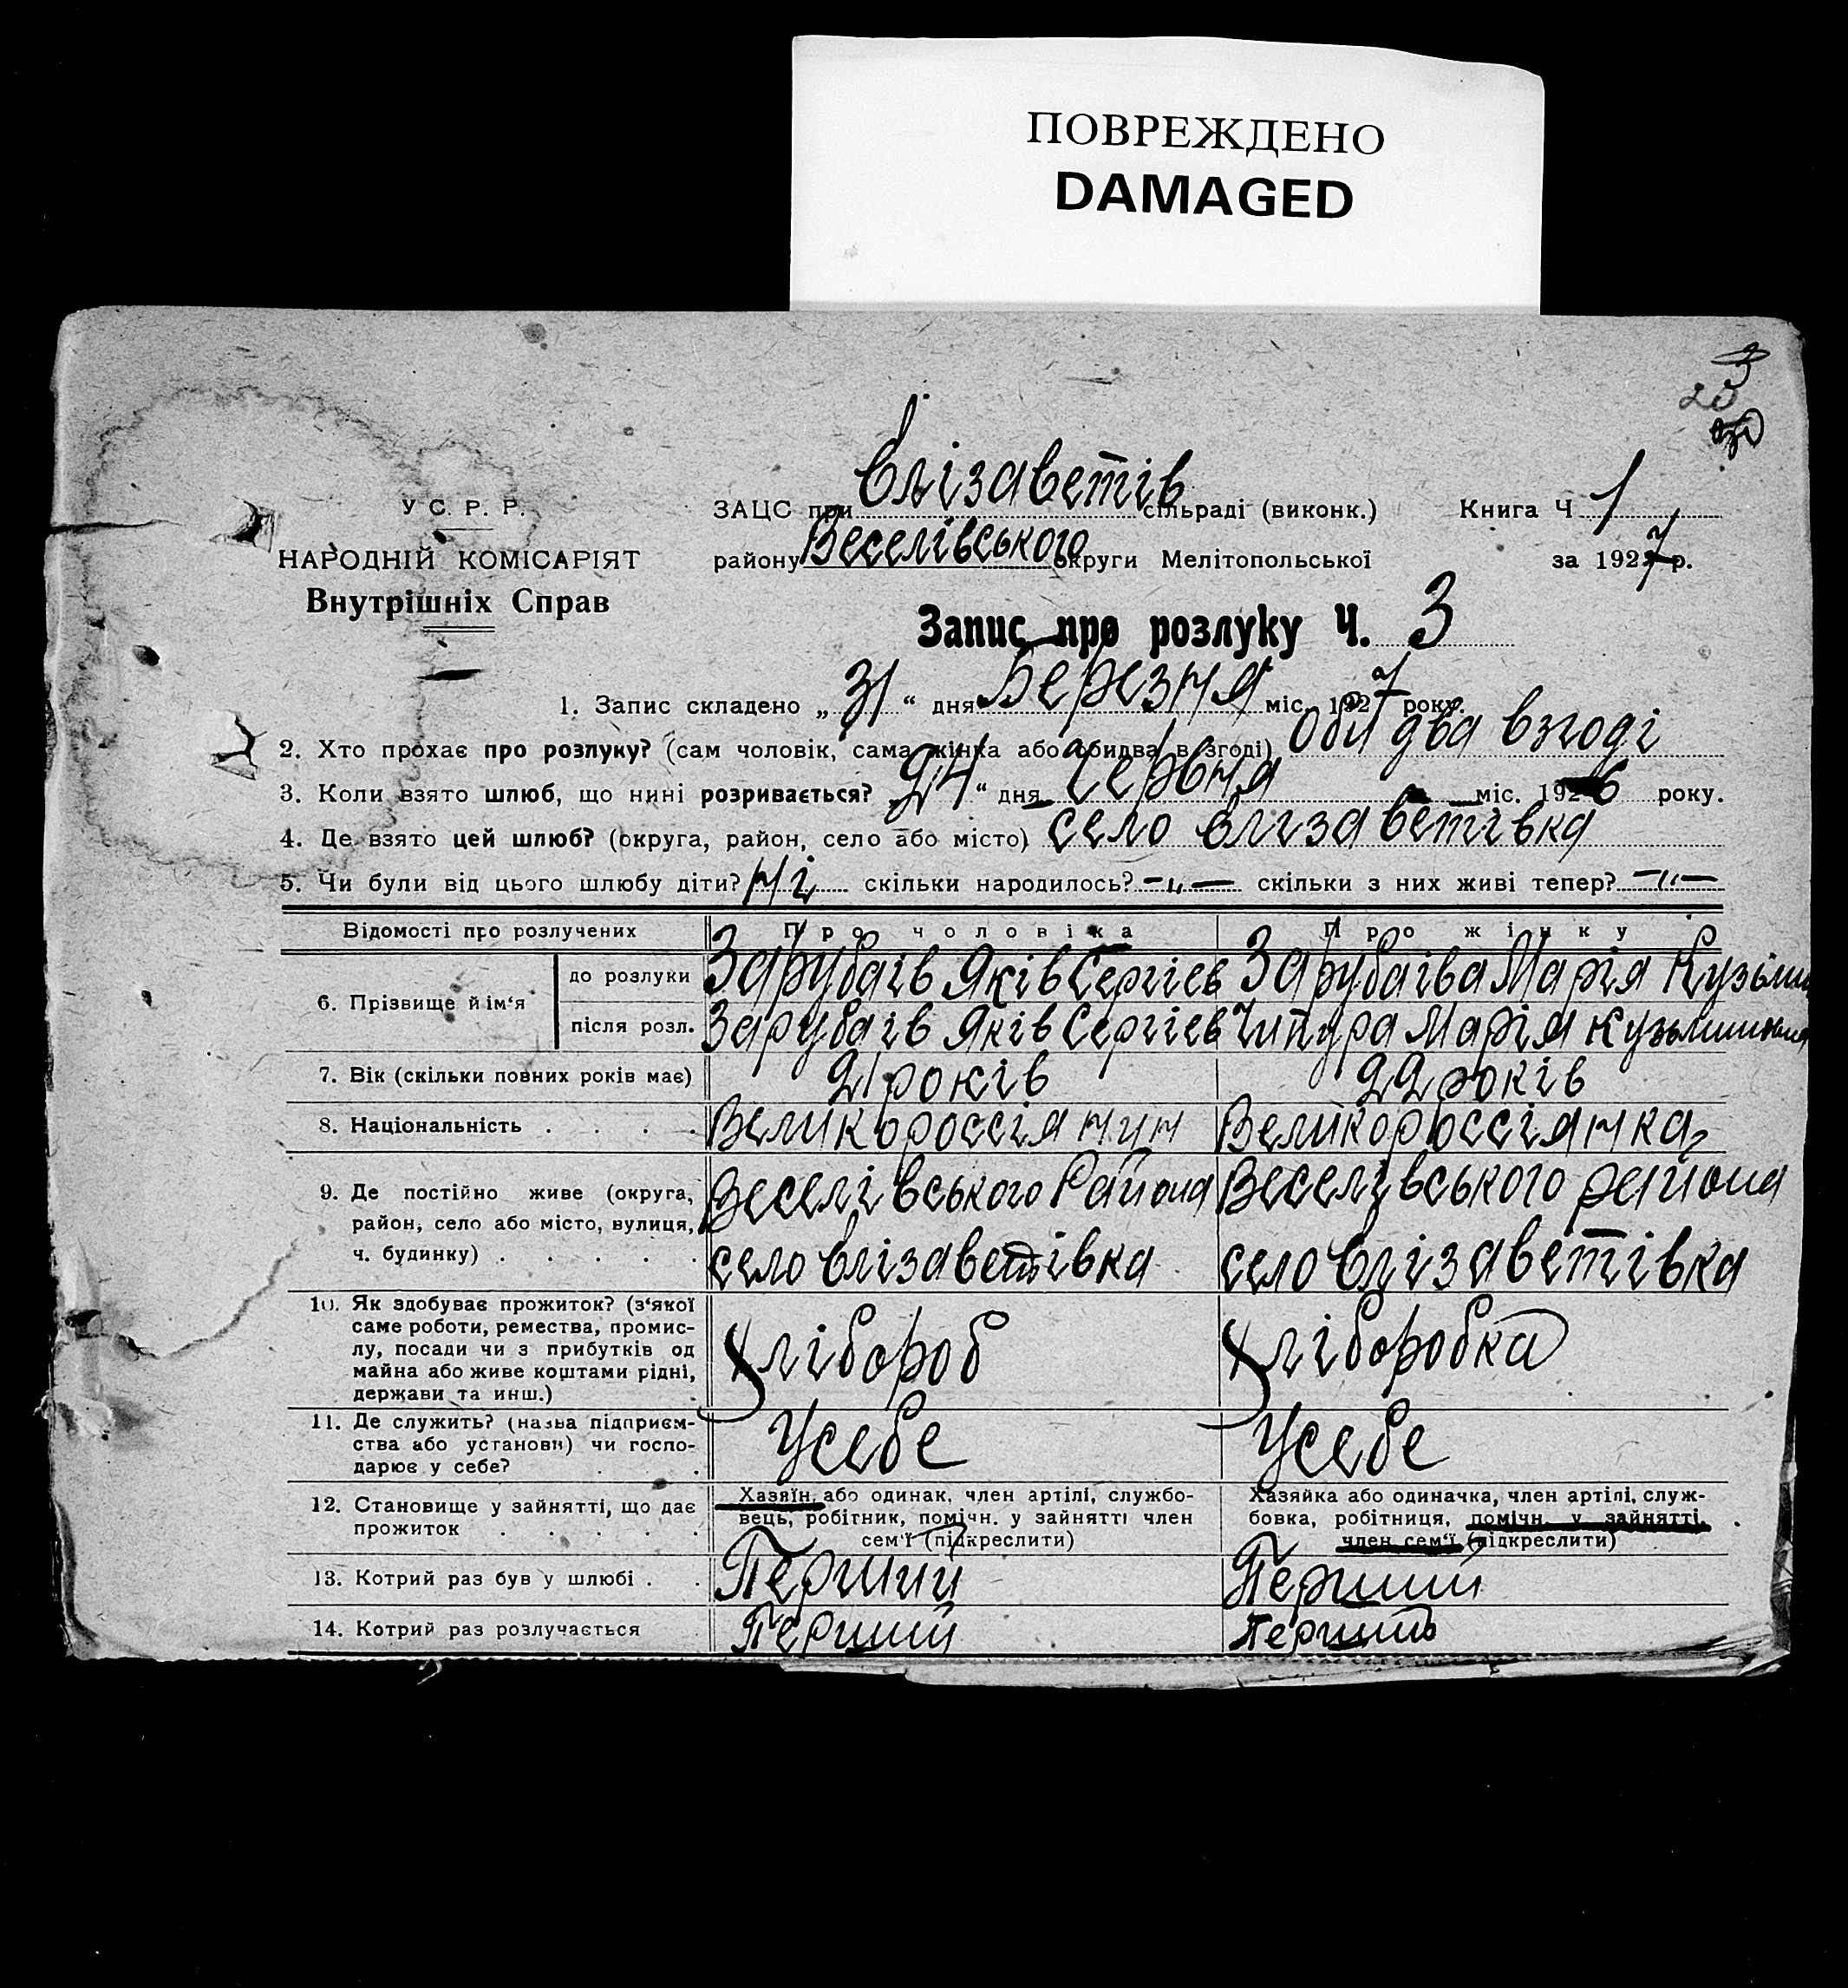 ПОВРЕЖДЕНО
DAMAGED
3
20
У С. Р. Р.
НАРОДНІЙ КОМІСАРІЯТ
Внутрішніх Справ
ЗАЦС при Єлізаветів сільраді (виконк.)
району Веселівського округи Мелітопольської
Книга Ч 1
за 1927 р.
Запис про розлуку Ч. 3
1. Запис складено „ 31 “ дня Березня міс. 1927 року.
2. Хто прохає про розлуку? (сам чоловік, сама жінка або обидва в згоді) Оби два взгоді
3. Коли взято шлюб, що нині розривається? „ 24 “ дня Червня міс. 1926 року.
4. Де взято цей шлюб? (округа, район, село або місто) село Єлізаветівка
5. Чи були від цього шлюбу діти? Ні скільки народилось? –„– скільки з них живі тепер? –„–
Відомості про розлучених Про чоловіка Про жінку
6. Прізвище й ім‘я до розлуки Зарубаів Яків Сергіев Зарубаіва Марія Кузьми
після розл. Зарубаів Яків Сергіев Чипура Марія
7. Вік (скільки повних років має) 21 років 22 років
8. Національність . . . . Великороссіянин Великороссіянка
9. Де постійно живе (округа, район, село або місто, вулиця, ч. будинку) . . . . .
Веселівського Района
село Єлізаветівка
Веселівського района
село Єлізаветівка
10. Як здобуває прожиток? (з‘якої
саме роботи, ремества, промис-
лу, посади чи з прибутків од
майна або живе коштами рідні,
держави та инш.)
Хлібороб Хліборобка
11. Де служить? (назва підприєм-
ства або установи) чи госпо-
дарює у себе?
Усебе Усебе
12. Становище у зайнятті, що дає
прожиток . . . . .
Хазяїн, або одинак, член артілі, службо-
вець, робітник, помічн. у зайнятті член
сем‘ї (підкреслити)
Хазяйка або одиначка, член артілі, служ-
бовка, робітниця, помічн. у зайнятті,
член сем‘ї (підкреслити)
13. Котрий раз був у шлюбі . . Перший Перший
14. Котрий раз розлучається Перший Перший